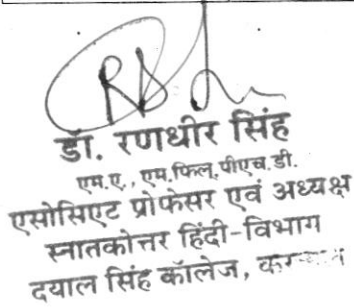 डॉ. रणधीर सिंह
एम.ए., एम.फिल, पीएच.डी.
एसोसिएट प्रोफेसर एवं अध्यक्ष
स्नातकोत्तर हिंदी-विभाग
दयाल सिंह कॉलेज,